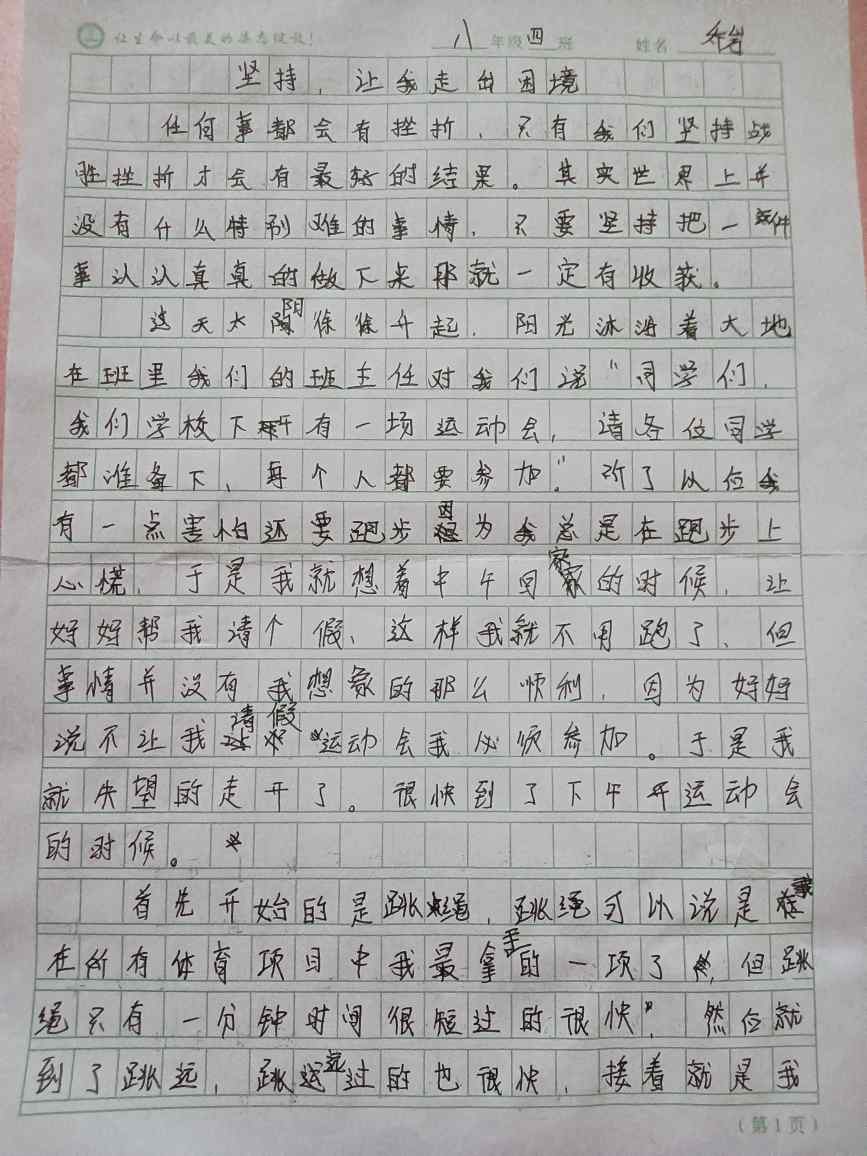 让生命以最美的姿态绽放！ 八年级四班 姓名
坚持，让我走出困境
任何事都会有挫折，只有我们坚持战
胜挫折才会有最好的结果。其实世界上并
没有什么特别难的事情，只要坚持把一件
事认认真真的做下来那就一定有收获。
这天太阳徐徐升起，阳光沐浴着大地
在班里我们的班主任对我们说“同学们，
我们学校下午有一场运动会，请各位同学
都准备下，每个人都要参加。”听了以后我
有一点害怕还要跑步因为我总是在跑步上
心慌，于是我就想着中午回家的时候，让
妈妈帮我请个假、这样我就不用跑了、但
事情并没有我想象的那么顺利，因为妈妈
说不让我请假运动会我必须参加。于是我
就失望的走开了。很快到了下午开运动会
的时候。
首先开始的是跳绳，跳绳可以说是我
在所有体育项目中我最拿手的一项了，但跳
绳只有一分钟时间很短过的很快，然后就
到了跳远，跳远过的也很快，接着就是我
（第1页）